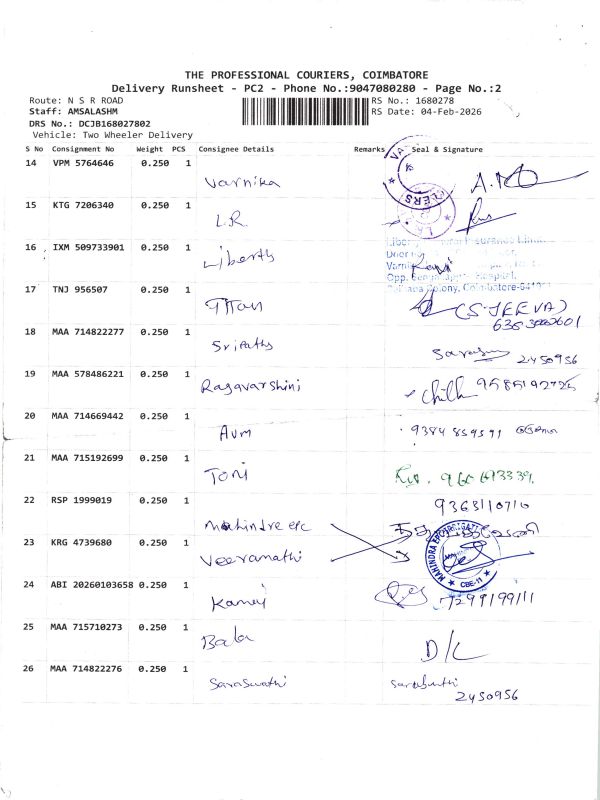 THE PROFESSIONAL COURIERS, COIMBATORE
Delivery Runsheet - PC2 - Phone No.:9047080280 - Page No.:2
Route: N S R ROAD
RS No.: 1680278
Staff: AMSALASHM
RS Date: 04-Feb-2026
DRS No.: DCJB168027802
Vehicle: Two Wheeler Delivery
S No Consignment No Weight PCS Consignee Details Remarks Seal & Signature
14 VPM 5764646 0.250 1
Varnika
15 KTG 7206340 0.250 1
L.R
16 IXM 509733901 0.250 1
Liberty
Coimbatore
17 TNJ 956507 0.250 1
Titan
(S.JEEVA)
18 MAA 714822277 0.250 1
Sripathy
2450956
19 MAA 578486221 0.250 1
Ragavarshini
20 MAA 714669442 0.250 1
Avm
9384 859591
21 MAA 715192699 0.250 1
Toni
22 RSP 1999019 0.250 1
9363110710
Mahindra epc
23 KRG 4739680 0.250 1
Veeramathi
MAHINDRA EPC IRRIGATION
CBE-11
24 ABI 20260103658 0.250 1
7299199111
25 MAA 715710273 0.250 1
Bala
D/L
26 MAA 714822276 0.250 1
Saraswathi
2450956